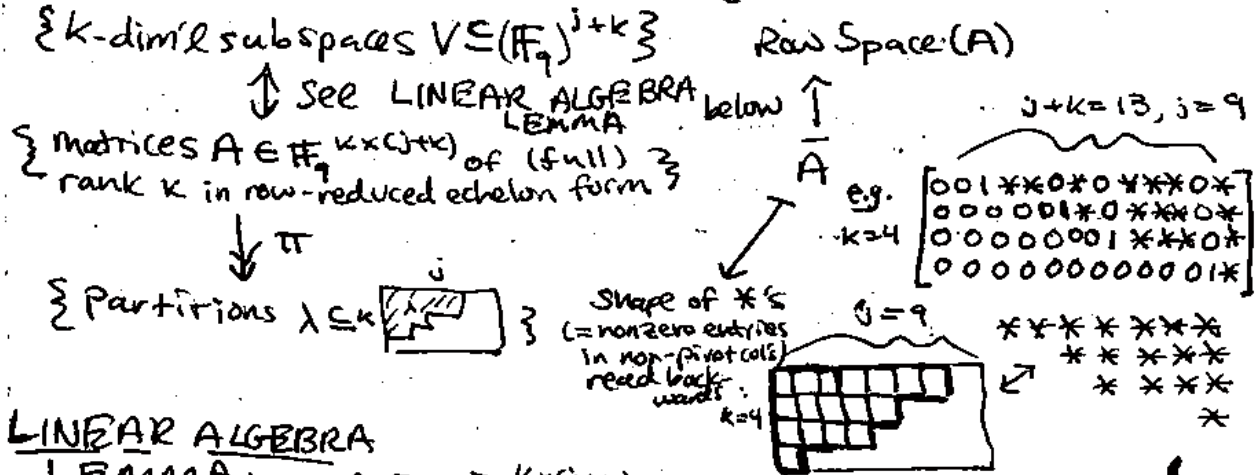 {k-dim'l subspaces V⊆(𝔽_q)^{j+k}} Row Space(A)
↕ See LINEAR ALGEBRA LEMMA below ↑
{matrices A ∈ 𝔽_q^{k×(j+k)} of (full) rank k in row-reduced echelon form} A
e.g. k=4
j+k=13, j=9
[0 0 1 * * 0 * 0 * * * 0 *
0 0 0 0 0 1 * 0 * * * 0 *
0 0 0 0 0 0 0 1 * * * 0 *
0 0 0 0 0 0 0 0 0 0 0 1 *]
↓ π
{Partitions λ ⊆ k j λ }
Shape of *'s
(=nonzero entries
in non-pivot cols)
read back-
wards
j=9
k=4
* * * * * * *
* * * * *
* * * *
*
LINEAR ALGEBRA
LEMMA